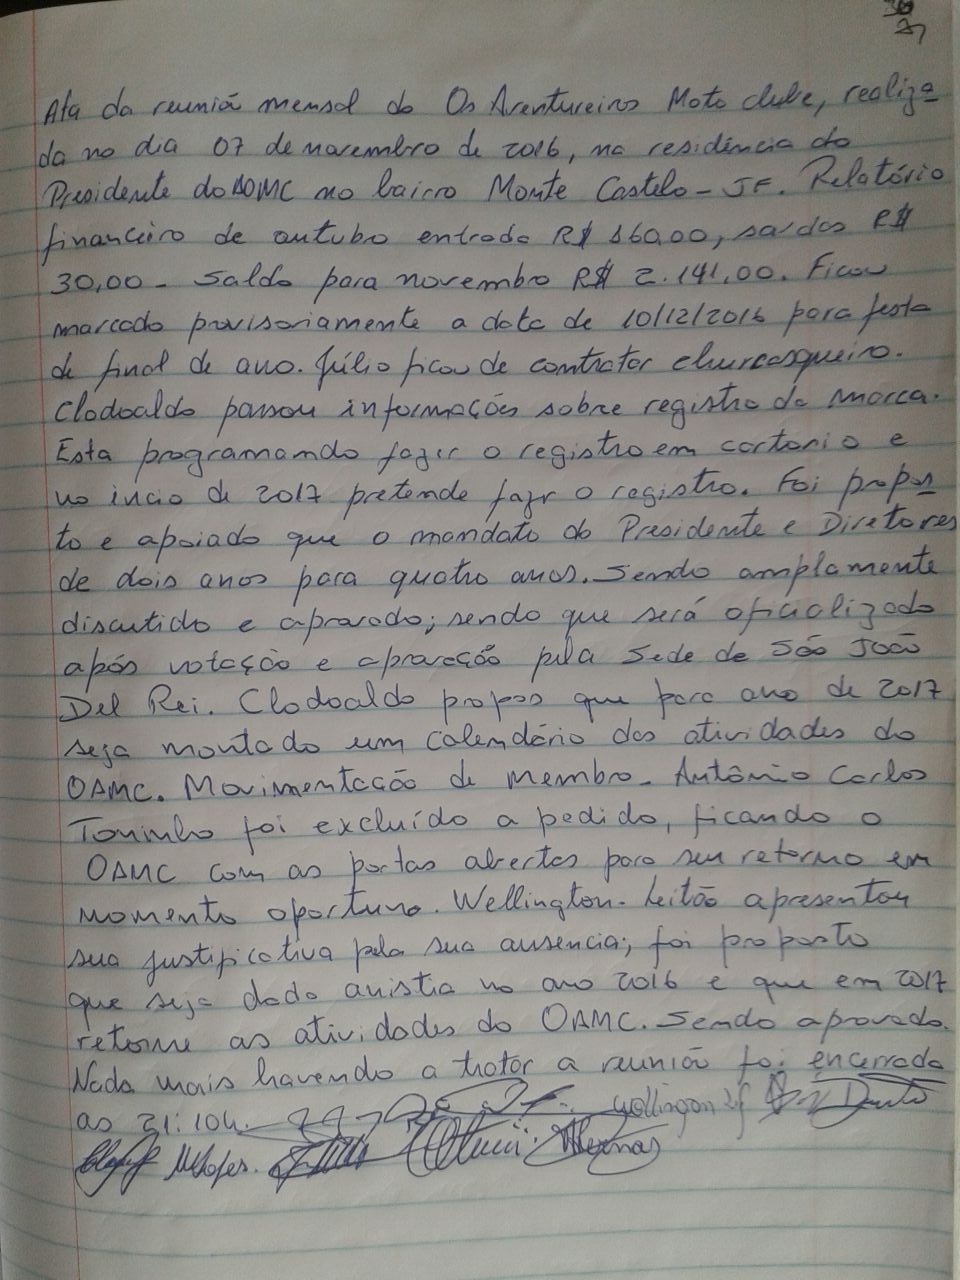 Ata da reunião mensal do Os Aventureiros Moto clube, realiza
da no dia 07 de novembro de 2016, na residência do
Presidente do AOMC no bairro Monte Castelo - JF. Relatório
financeiro de outubro entrada R$ 160,00, saidas R$
30,00 - Saldo para novembro R$ 2.141,00. Ficou
marcado provisoriamente a data de 10/12/2016 para festa
de final de ano. Júlio ficou de contratar churrasqueiro.
Clodoaldo passou informações sobre registro da marca.
Esta programando fazer o registro em cartorio e
no incio de 2017 pretende fazr o registro. Foi propos
to e apoiado que o mandato do Presidente e Diretores
de dois anos para quatro anos. Sendo amplamente
discutido e aprovado; sendo que será oficializado
após votação e aprovação pela Sede de São João
Del Rei. Clodoaldo propos que para ano de 2017
seja montado um calendário das atividades do
OAMC. Movimentação de membro - Antônio Carlos
Toninho foi excluído a pedido, ficando o
OAMC com as portas abertas para seu retorno em
momento oportuno. Wellington - Leitão apresentou
sua justificativa pela sua ausencia; foi proposto
que seja dado anistia no ano 2016 e que em 2017
retorne as atividades do OAMC. Sendo aprovado.
Nada mais havendo a tratar a reunião foi encerrada
as 21:10h.